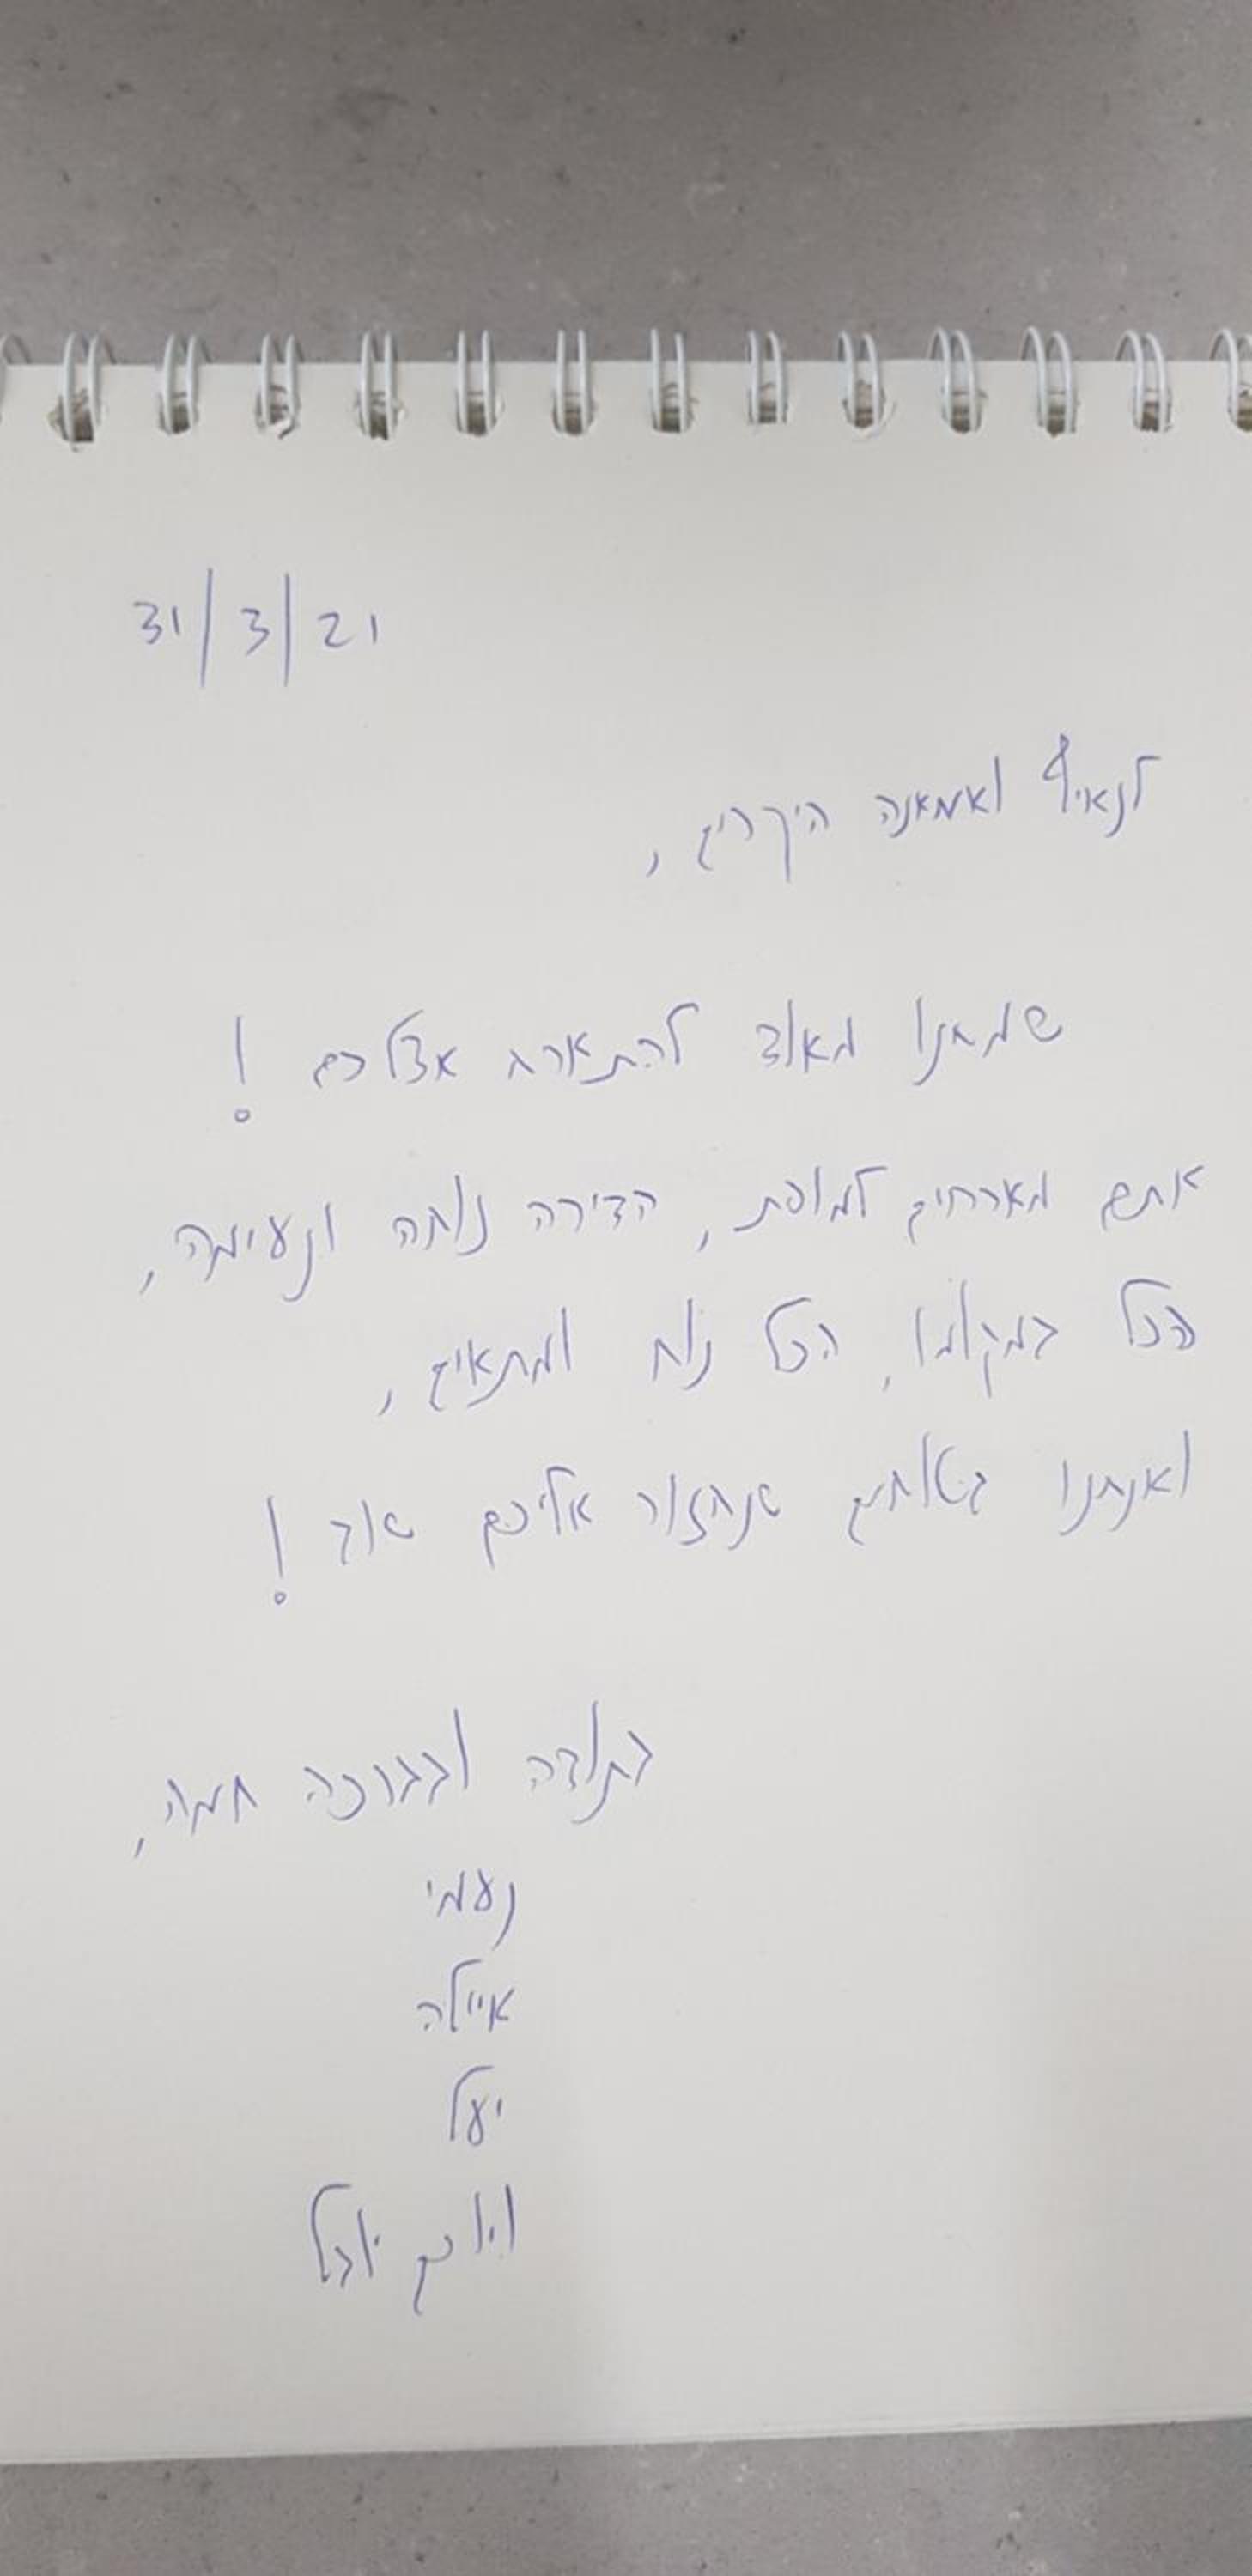 31/3/21
לנאיף ואמאנה היקרים,
שמחנו מאוד להתארח אצלכם!
אתם מארחים למופת, הדירה נוחה ונעימה,
הכל במקומו, הכל נוח ומתאים,
ואנחנו בטוחים שנחזור אליכם שוב!
בתודה ובברכה חמה,
נעמי
איילה
יעל